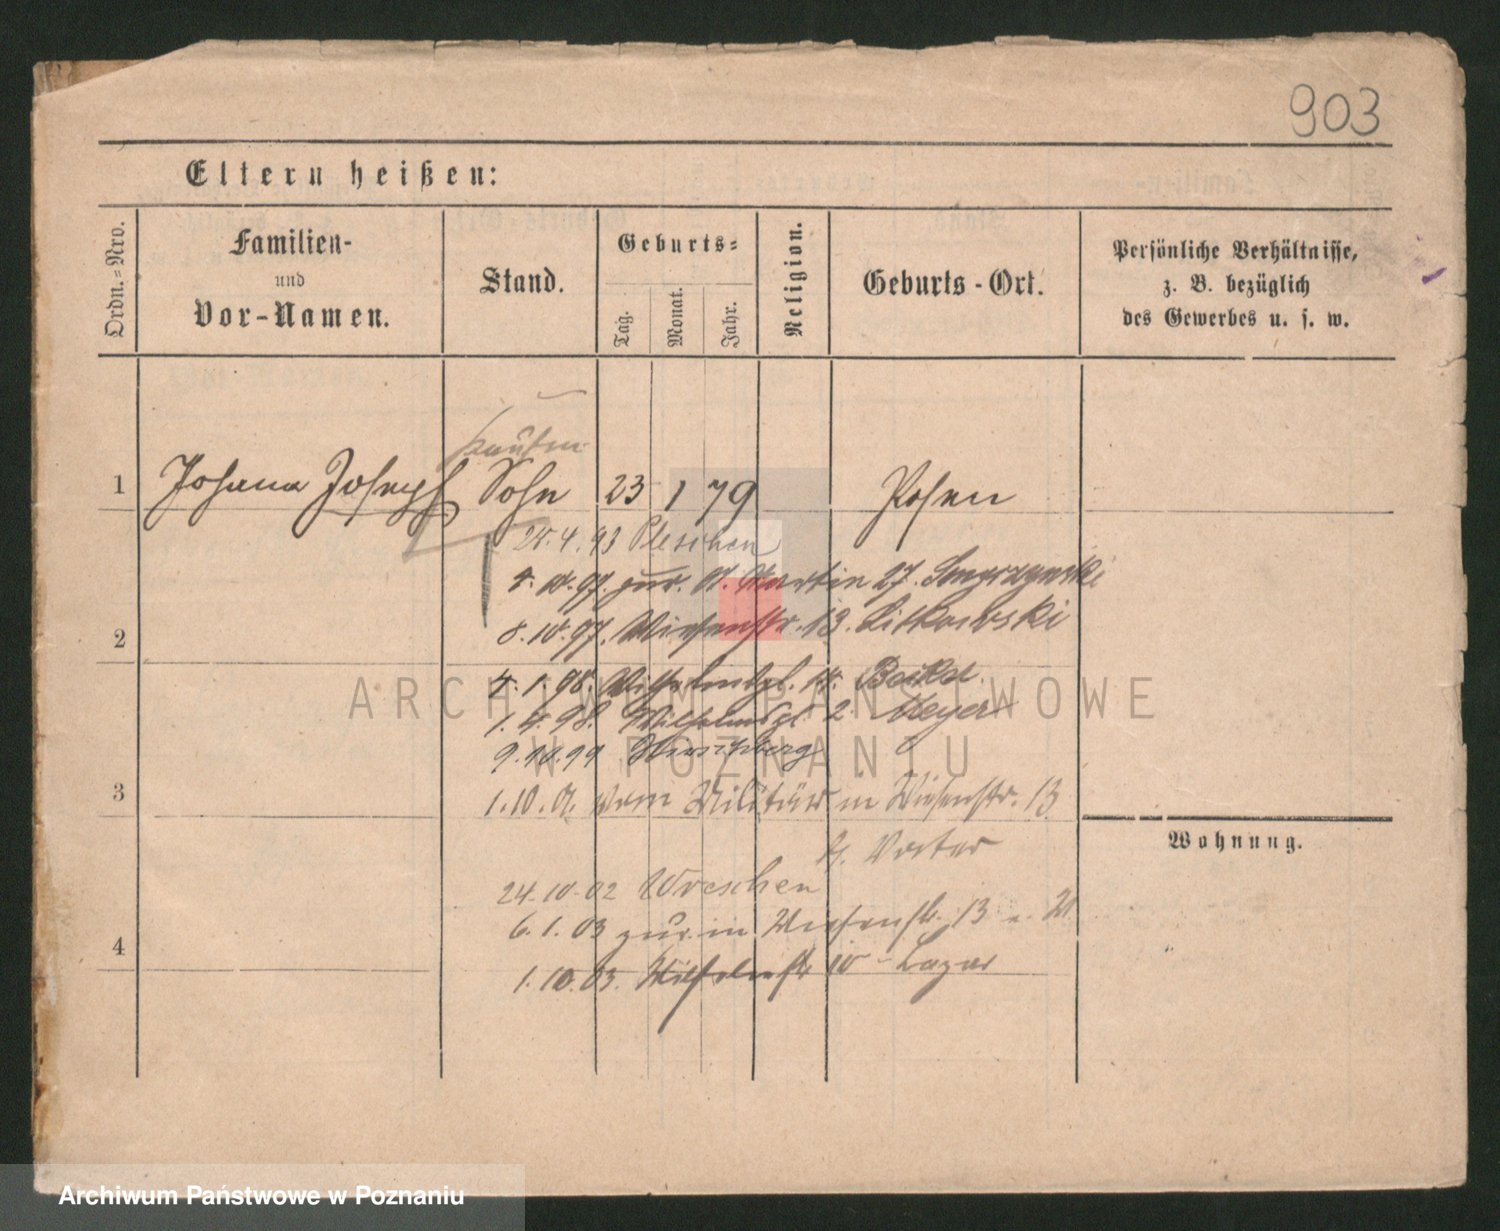 903
Eltern heißen:
Ordn.-Nro.
Familien-
und
Vor-Namen.
Stand.
Geburts-
Tag.
Monat.
Jahr.
Religion.
Geburts-Ort.
Persönliche Verhältnisse,
z. B. bezüglich
des Gewerbes u. s. w.
Kaufm.
1 Johann Joseph Sohn 23 1 79 Posen
4.93 Pleschen
4.10.97. zur. St. Martin 27.
2
8.10.97. Wiesenstr. 13. Litkowski
4.1.98. Wilhelmspl. 14.
1.4.98. Wilhelmspl. 2. Meyer
9.10.99 Hirschberg
3
1.10.01. vom Militär in Wiesenstr. 13
b. Vater
Wohnung.
24.10.02 Wreschen
6.1.03 zur. in Wiesenstr. 13 b. V.
4
1.10.03. Wilhelmstr. Lazar
ARCHIWUM PAŃSTWOWE
W POZNANIU
Archiwum Państwowe w Poznaniu